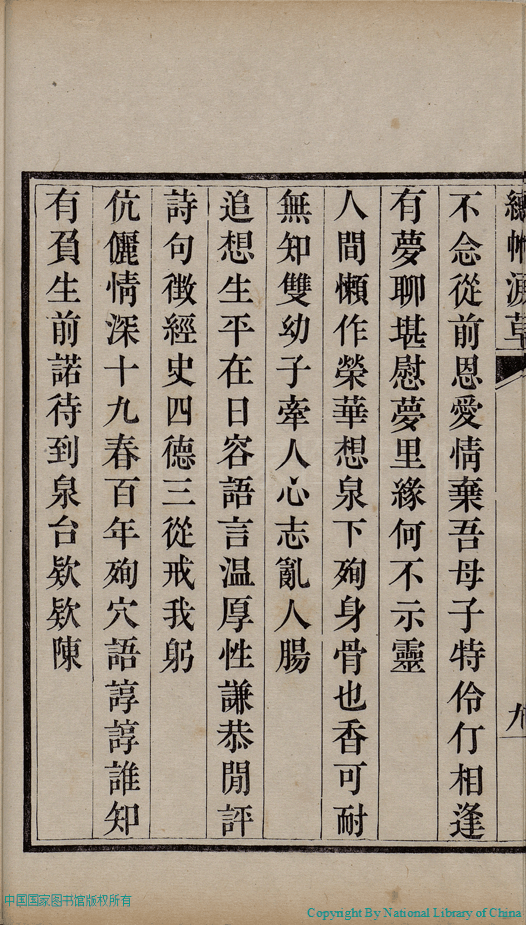 繐帷淚草
九
不念從前恩愛情棄吾母子特伶仃相逢
有夢聊堪慰夢里緣何不示靈
人間懶作榮華想泉下殉身骨也香可耐
無知雙幼子牽人心志亂人腸
追想生平在日容語言温厚性謙恭閒評
詩句徵經史四德三從戒我躬
伉儷情深十九春百年殉穴語諄諄誰知
有負生前諾待到泉台欵欵陳
中国国家图书馆版权所有
Copyright By National Library of China